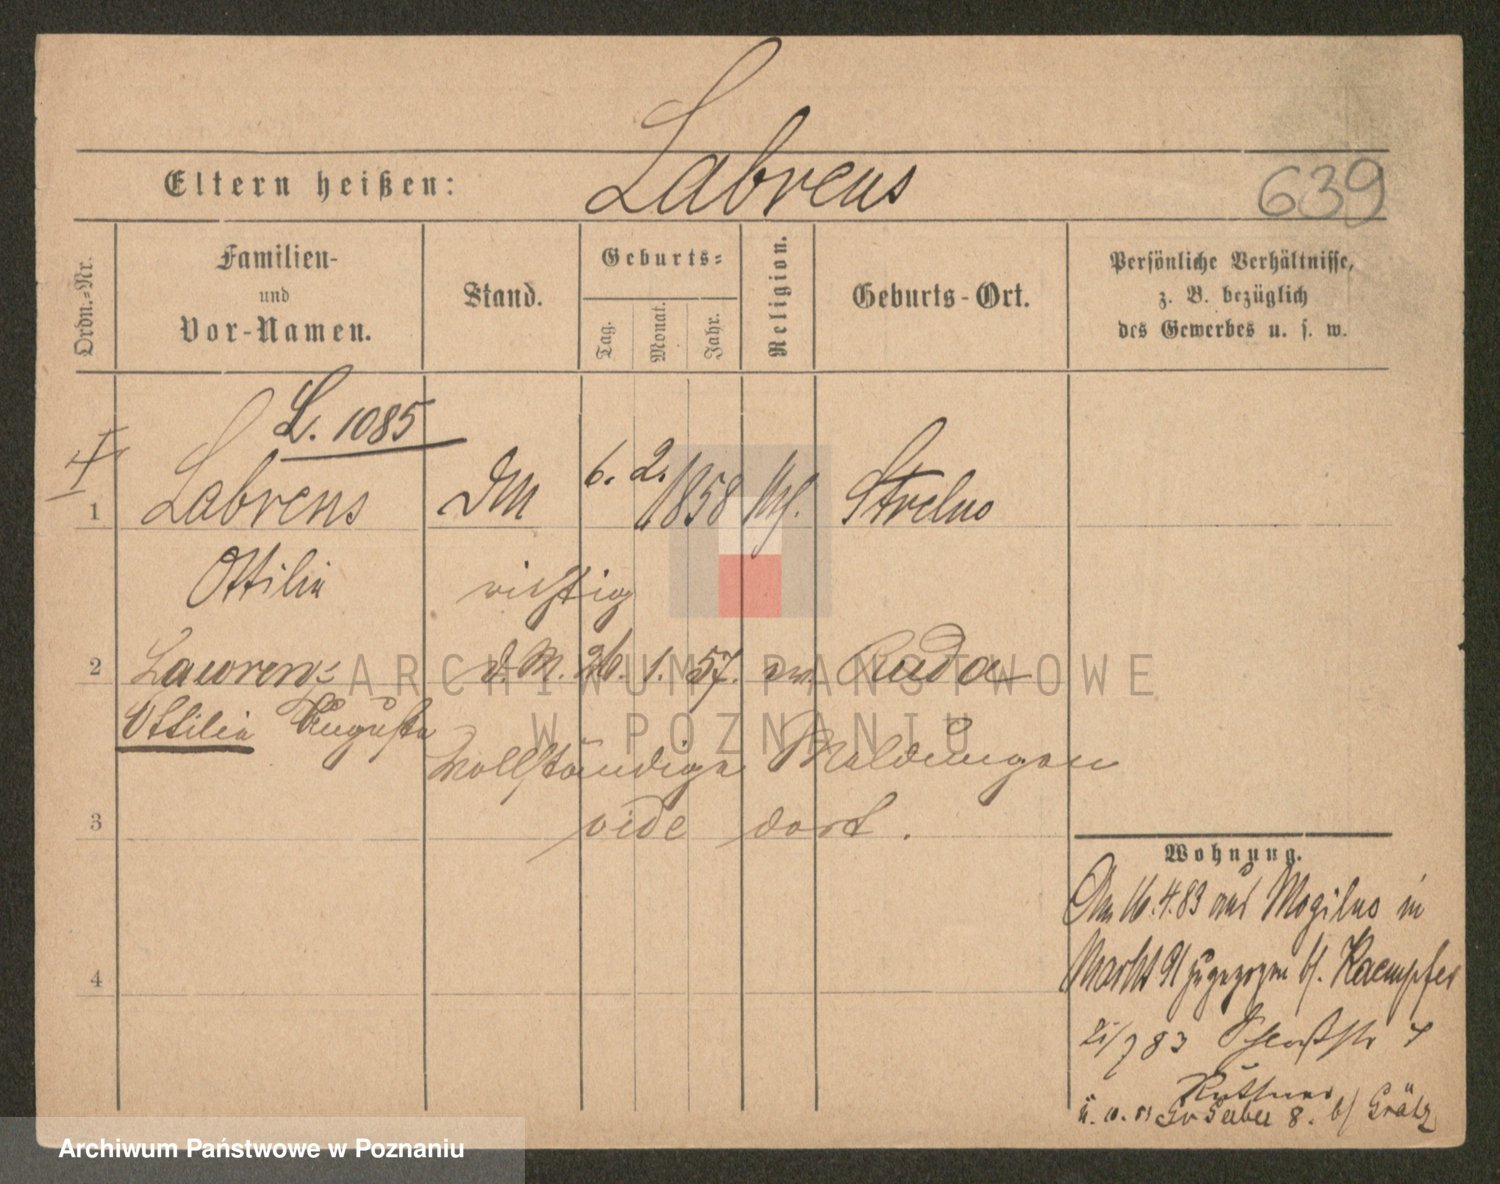 Labrens
Eltern heißen:
639
Ordn.-Nr.
Familien-
und
Vor-Namen.
Stand.
Geburts-
Tag.
Monat.
Jahr.
Religion.
Geburts-Ort.
Persönliche Verhältnisse,
z. B. bezüglich
des Gewerbes u. s. w.
L. 1085
1 Labrens DM 6. 2. 1858 Strelno
Ottilie richtig
2 Lawrenz d. M. 26. 1. 57. ev. Ruda
Ottilie Auguste
Vollständige Meldungen
3 vide dort.
4
Wohnung.
Am 16.4.83 aus Mogilno in
Markt 91 zugezogen b/. Kaempfer
83 Schloßstr 4
8. b/ Grätz
ARCHIWUM PAŃSTWOWE
W POZNANIU
Archiwum Państwowe w Poznaniu